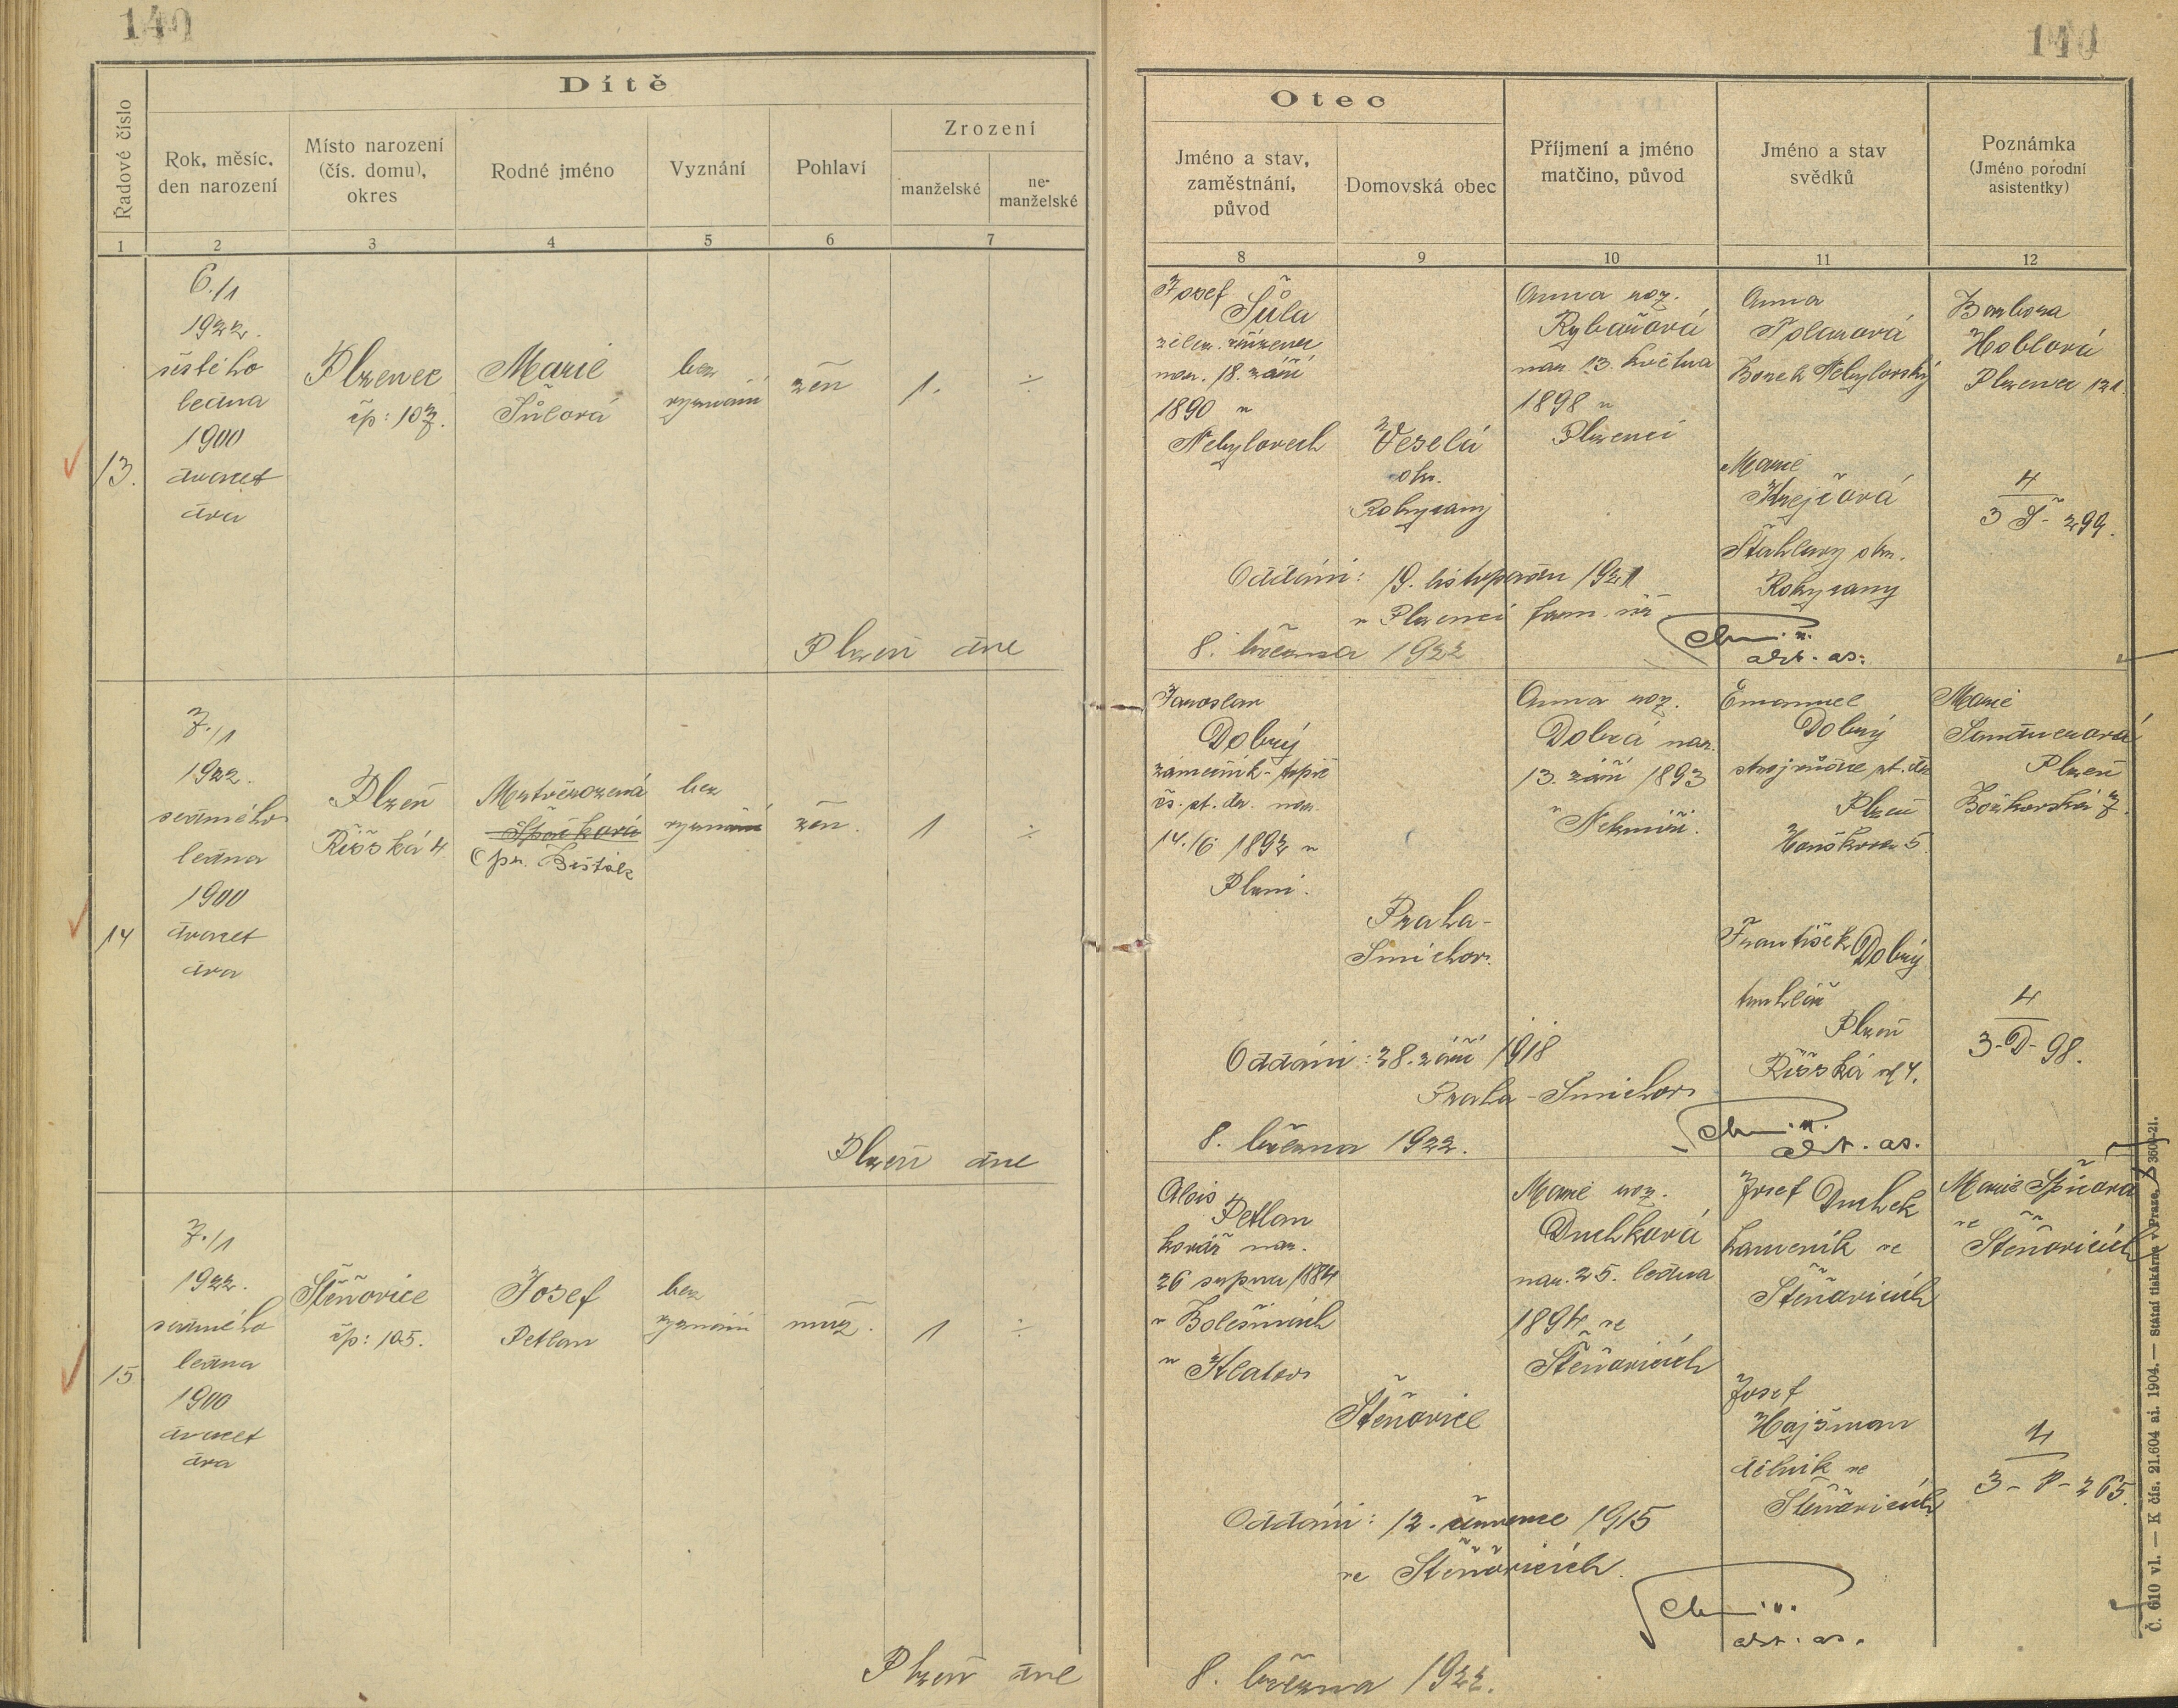 140
140
Dítě
Řadové číslo
Rok, měsíc,
den narození
Místo narození
(čís. domu),
okres
Rodné jméno
Vyznání
Pohlaví
Zrození
manželské
ne-
manželské
1
2
3
4
5
6
7
Otec
Jméno a stav,
zaměstnání,
původ
Domovská obec
Příjmení a jméno
matčino, původ
Jméno a stav
svědků
Poznámka
(Jméno porodní
asistentky)
8
9
10
11
12
13.
6./1
1922.
šestého
ledna
1900
dvacet
dva
Plzenec
čp: 107.
Marie
Šůlová
bez
vyznání
žen
1.
÷
Josef
Šůla
želez. zřízenec
nar. 18. září
1890 v
Nebylovech
Veselá
okr.
Rokycany
Anna roz.
Rybářová
nar 13. května
1898 v
Plzenci
Anna
Polanová
Borek Nebylovský
Marie
Krejčová
Šťáhlavy okr.
Rokycany
Barbora
Hoblová
Plzenec 121
4
3 Š - 299.
Oddáni: 19. listopadu 1921
v Plzenci farn. úř
Plzeň dne
8. března 1922
adt. as.
14
7./1
1922.
sedmého
ledna
1900
dvacet
dva
Plzeň
Říšská 4
Mrtvěrozená
bez
vyznání
žen.
1
÷
Jaroslav
Dobrý
zámečník-topič
čs. st. dr. nar.
14./6 1892 v
Plzni.
Praha-
Smíchov.
Anna roz.
Dobrá nar.
13. září 1893
v Nekmíři.
Emanuel
Dobrý
strojvůdce st. dr
Plzeň
František Dobrý
truhlář
Plzeň
Říšská ul 4.
Marie
Sandnerová
Plzeň
Božkovská 7.
4
3-D-98.
Oddáni: 28. září 1918
Praha-Smíchov
Plzeň dne
8. března 1922.
adt. as.
15
7./1
1922.
sedmého
ledna
1900
dvacet
dva
Štěnovice
čp: 105.
Josef
Petlan
bez
vyznání
muž.
1
÷
Alois
Petlan
kovář nar.
26 srpna 1884
v Bolešinách
u Klatov
Štěnovice
Marie roz.
Duchková
nar. 25. ledna
1894 ve
Štěnovicích
Josef Duchek
kameník ve
Štěnovicích
Josef
Hajšman
dělník ve
Štěnovicích
Marie Špicová
ve
Štěnovicích
4
3-P-265.
Oddáni: 12. července 1915
ve Štěnovicích.
Plzeň dne
8. března 1922.
adt. as.
Č. 610 vl. — K čís. 21.604 ai. 1904. — Státní tiskárna v Praze.